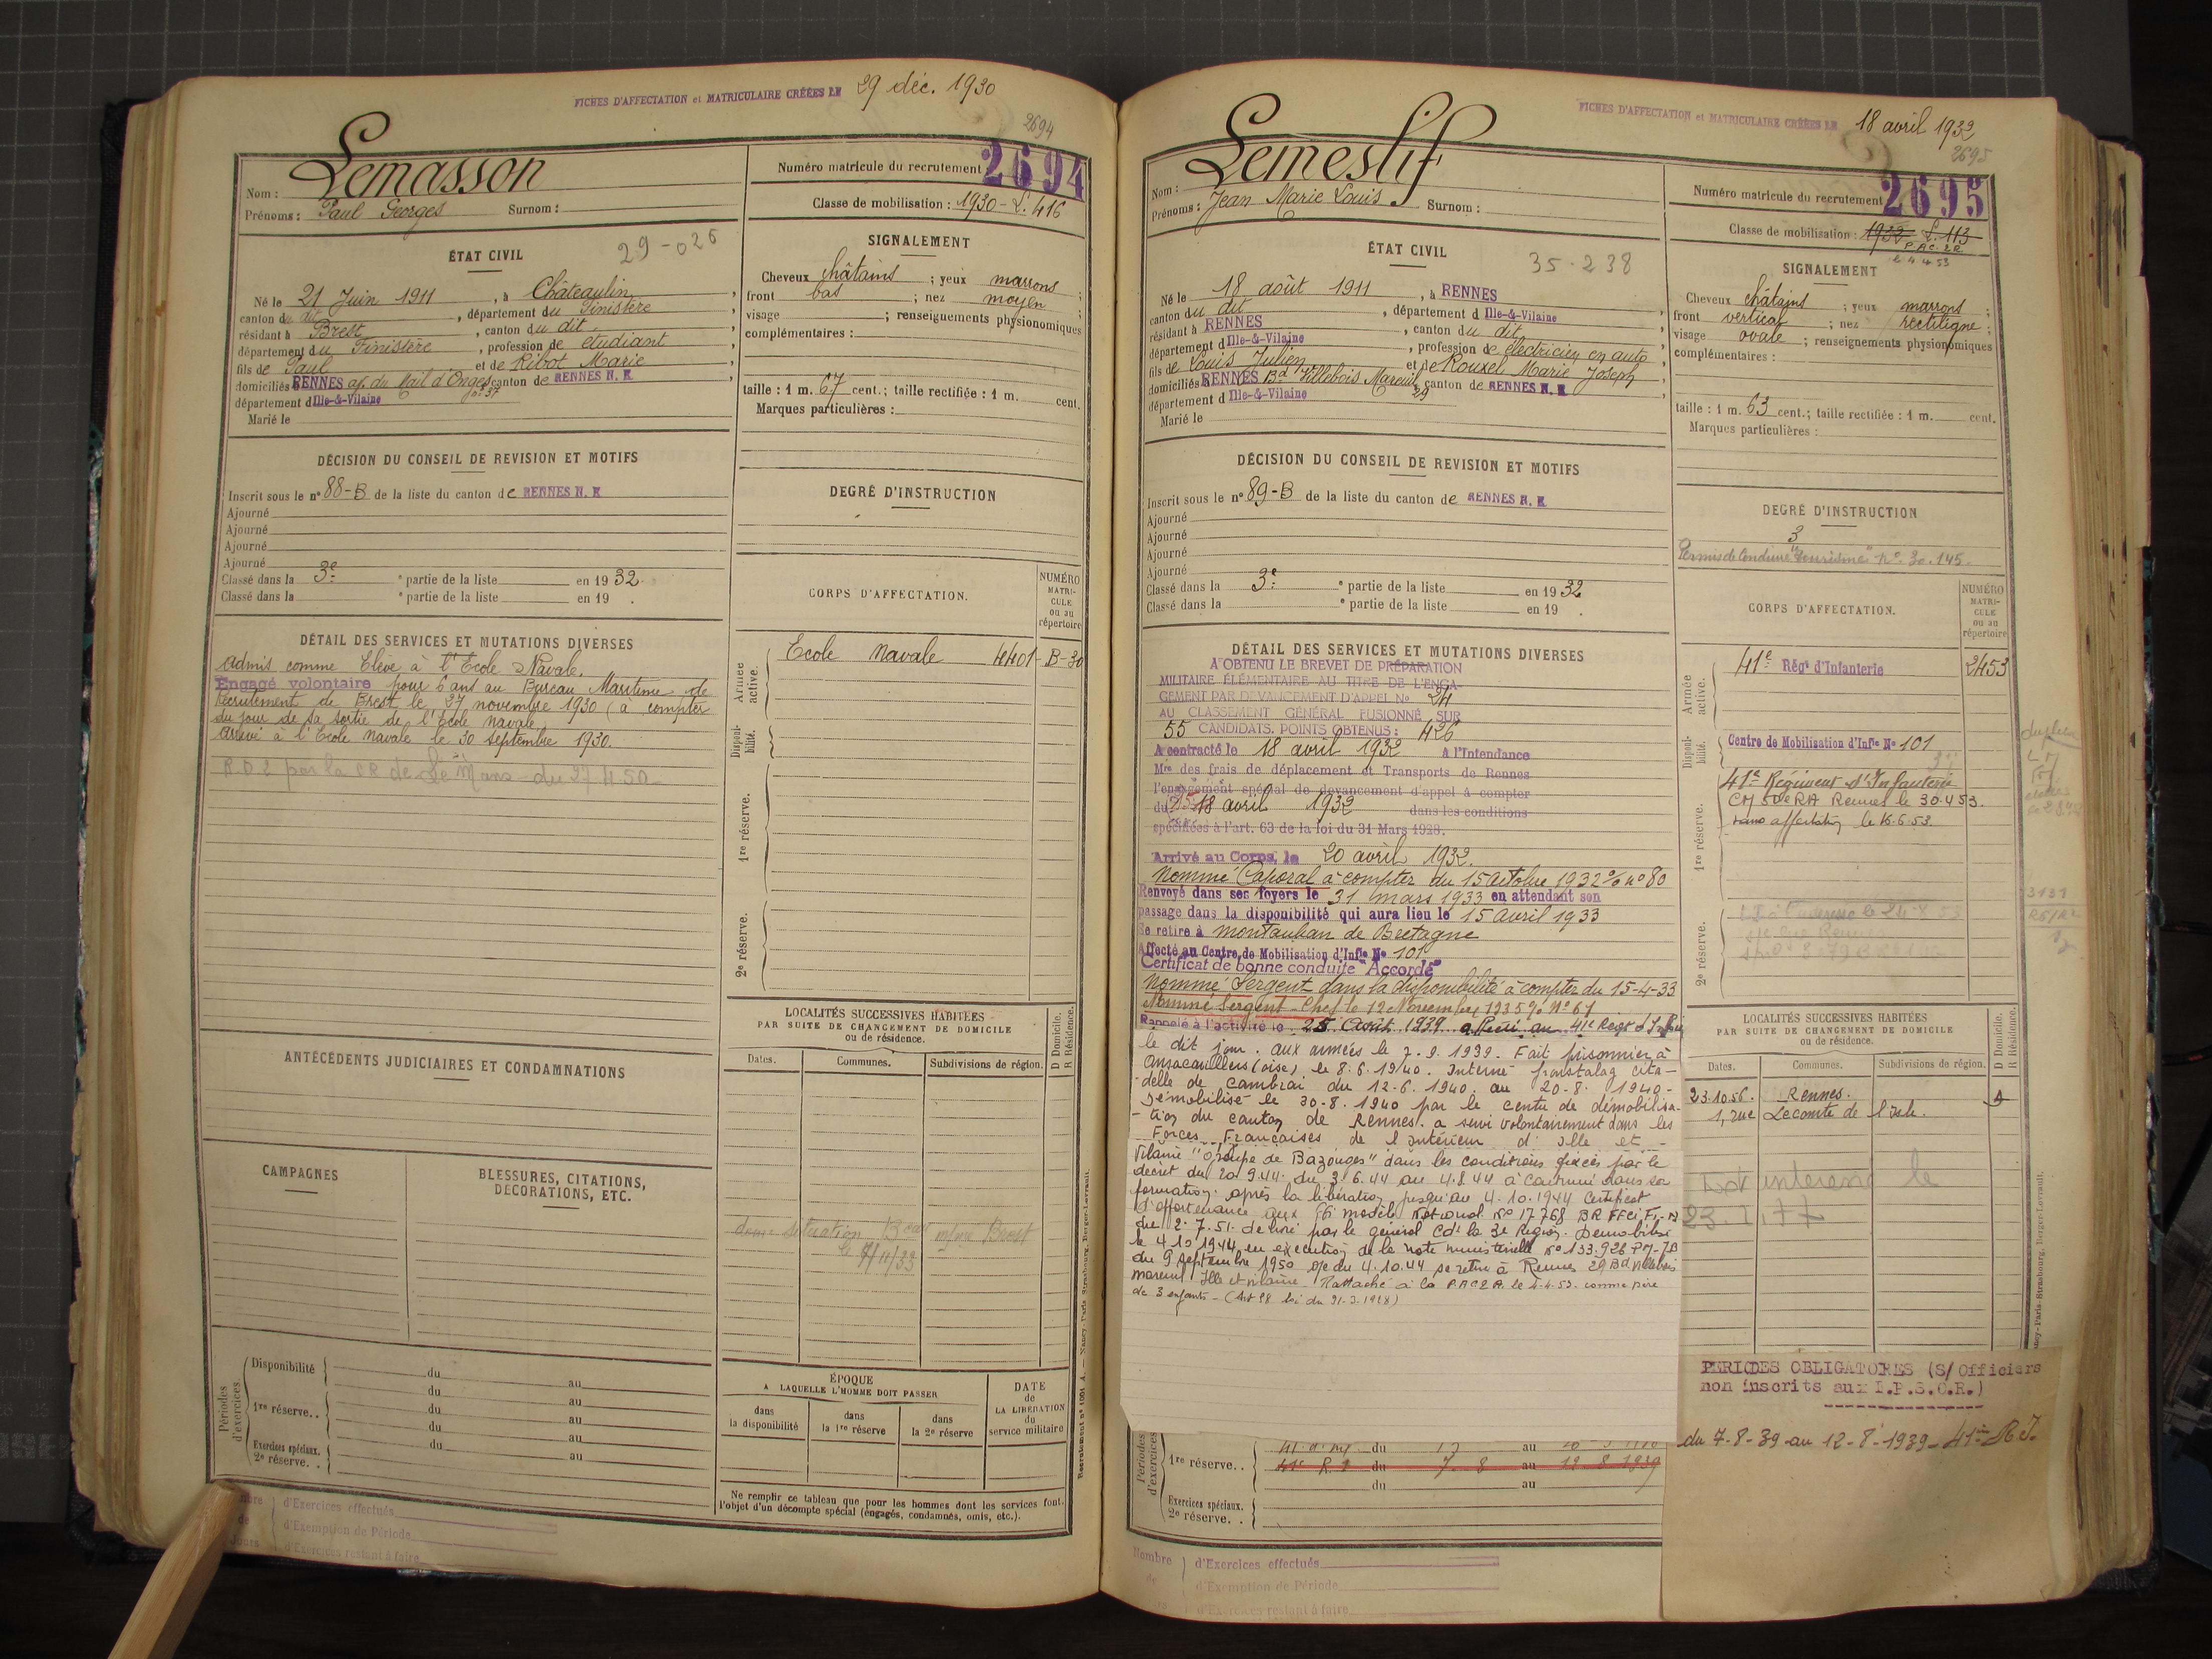 FICHES D'AFFECTATION et MATRICULAIRE CRÉÉES LE 29 déc. 1930
2694
Nom : Lemasson
Prénoms : Paul Georges Surnom :
Numéro matricule du recrutement 2694
Classe de mobilisation : 1930 - L. 416
ÉTAT CIVIL
29-026
Né le 21 Juin 1911, à Châteaulin,
canton du dit, département du Finistère
résidant à Brest, canton du dit.
département du Finistère, profession de étudiant
fils de Paul et de Ribot Marie
domiciliés RENNES canton de RENNES N. E
département d'Ille-&-Vilaine
Marié le
SIGNALEMENT
Cheveux châtains ; yeux marrons ;
front bas ; nez moyen ;
visage ; renseignements physionomiques
complémentaires :
taille : 1 m. 67 cent.; taille rectifiée : 1 m. cent.
Marques particulières :
DÉCISION DU CONSEIL DE REVISION ET MOTIFS
Inscrit sous le n° 88-B de la liste du canton de RENNES N. E
Ajourné
Ajourné
Ajourné
Ajourné
Classé dans la 3e ° partie de la liste en 1932.
Classé dans la ° partie de la liste en 19 .
DEGRÉ D'INSTRUCTION
CORPS D'AFFECTATION.
NUMÉRO MATRI-CULE ou au répertoire
DÉTAIL DES SERVICES ET MUTATIONS DIVERSES
Admis comme Elève à l'Ecole Navale.
Engagé volontaire pour 6 ans au Bureau Maritime de
Recrutement de Brest le 27 novembre 1930 (à compter
du jour de sa sortie de l'Ecole navale
Arrivé à l'Ecole navale le 30 septembre 1930.
par la CR de Le Mans du 27.4.50
Armée active.
Ecole Navale 4401-B-30
Disponi-bilité.
1re réserve.
2e réserve.
ANTÉCÉDENTS JUDICIAIRES ET CONDAMNATIONS
LOCALITÉS SUCCESSIVES HABITÉES
PAR SUITE DE CHANGEMENT DE DOMICILE
ou de résidence.
D Domicile.
R Résidence.
Dates. Communes. Subdivisions de région.
situation Brest
11/33
CAMPAGNES
BLESSURES, CITATIONS,
DÉCORATIONS, ETC.
Périodes d'exercices.
Disponibilité du au
du au
1re réserve.. du au
du au
Exercices spéciaux.
2e réserve. . du au
ÉPOQUE
A LAQUELLE L'HOMME DOIT PASSER
dans la disponibilité
dans la 1re réserve
dans la 2e réserve
DATE de LA LIBÉRATION du service militaire
Ne remplir ce tableau que pour les hommes dont les services font
l'objet d'un décompte spécial (engagés, condamnés, omis, etc.).
d'Exercices effectués
d'Exemption de Période
Jours d'Exercices restant à faire
FICHES D'AFFECTATION et MATRICULAIRE CRÉÉES LE 18 avril 1932
2695
Nom : Lemeslif
Prénoms : Jean Marie Louis Surnom :
Numéro matricule du recrutement 2695
Classe de mobilisation : 1932 L. 113
2.4.4.53
ÉTAT CIVIL
35-238
Né le 18 août 1911, à RENNES
canton du dit, département d'Ille-&-Vilaine
résidant à RENNES, canton du dit
département d'Ille-&-Vilaine, profession de électricien en auto
fils de Louis Julien et de Rouxel Marie Joseph
domiciliés à RENNES Bd Villebois Mareuil 29 canton de RENNES N. E
département d'Ille-&-Vilaine
Marié le
SIGNALEMENT
Cheveux châtains ; yeux marrons ;
front vertical ; nez rectiligne ;
visage ovale ; renseignements physionomiques
complémentaires :
taille : 1 m. 63 cent.; taille rectifiée : 1 m. cent.
Marques particulières :
DÉCISION DU CONSEIL DE REVISION ET MOTIFS
Inscrit sous le n° 89-B de la liste du canton de RENNES N. E
Ajourné
Ajourné
Ajourné
Ajourné
Classé dans la 3e ° partie de la liste en 1932
Classé dans la ° partie de la liste en 19 .
DEGRÉ D'INSTRUCTION
3
Permis de Conduire "Tourisme" n° 30.145.
CORPS D'AFFECTATION.
NUMÉRO MATRI-CULE ou au répertoire
DÉTAIL DES SERVICES ET MUTATIONS DIVERSES
A OBTENU LE BREVET DE PRÉPARATION
MILITAIRE ÉLÉMENTAIRE AU TITRE DE L'ENGA-
GEMENT PAR DEVANCEMENT D'APPEL N° 24
AU CLASSEMENT GÉNÉRAL FUSIONNÉ SUR
55 CANDIDATS. POINTS OBTENUS : 426
A contracté le 18 avril 1932 à l'Intendance
Mre des frais de déplacement et Transports de Rennes
l'engagement spécial de devancement d'appel à compter
du 18 avril 1932 dans les conditions
spécifiées à l'art. 63 de la loi du 31 Mars 1928.
Arrivé au Corps, le 20 avril 1932.
Nommé Caporal à compter du 15 Octobre 1932 % n° 80
Renvoyé dans ses foyers le 31 mars 1933 en attendant son
passage dans la disponibilité qui aura lieu le 15 avril 1933
Se retire à Montauban de Bretagne
Affecté au Centre de Mobilisation d'Infie N° 101
Certificat de bonne conduite "Accordé"
Nommé Sergent dans la disponibilité à compter du 15-4-33
Nommé Sergent-Chef le 12 Novembre 1935 % N° 61
Rappelé à l'activité le 25 Août 1939 au 41e Regt d'Infie
le dit jour. aux armées le 7.9.1939. Fait prisonnier à
Ansacavillers (oise) le 8.6.1940. Interné frontstalag cita-
-delle de Cambrai du 12-6.1940. au 20-8.1940-
Démobilisé le 30-8.1940 par le centre de démobilisa-
-tion du canton de Rennes. a servi volontairement dans les
Forces Françaises de l'intérieur d'Ille et -
Vilaine "Groupe de Bazouges" dans les conditions fixées par le
décret du 20.9.44. du 3.6.44 au 4.8.44 à continué dans sa
formation après la libération jusqu'au 4.10.1944 Certificat
d'appartenance aux FFI modèle National N° 17768
du 2.7.51. délivré par le général Cdt la 3e Région. Démobilisé
le 4.10.1944 en exécution de la note ministérielle N° 133.926
du 9 Septembre 1950 du 4.10.44 se retire à Rennes 29 Bd Villebois
Mareuil Ille et Vilaine. Rattaché à la le 4.4.53. comme père
de 3 enfants - (Art 58 loi du 31-3-1928)
Armée active.
41e Régt d'Infanterie 2453
Disponi-bilité.
Centre de Mobilisation d'Infie N° 101
1re réserve.
41e Régiment d'Infanterie
Rennes le 30.4.53.
sans affectation le 16.6.53.
2e réserve.
LOCALITÉS SUCCESSIVES HABITÉES
PAR SUITE DE CHANGEMENT DE DOMICILE
ou de résidence.
D Domicile.
R Résidence.
Dates. Communes. Subdivisions de région.
23.10.56. Rennes.
1, rue Lecomte de l'Isle.
PERIODES OBLIGATOIRES (S/Officiers
non inscrits aux I.P.S.O.R.)
du 7-8-39 au 12-8-1939 - 41ème R.I.
Périodes d'exercices
1re réserve.. 41e R.I. du 7 8 au 12 8 1939
du au
Exercices spéciaux.
2e réserve. .
Nombre de d'Exercices effectués
d'Exemption de Période
d'Exercices restant à faire